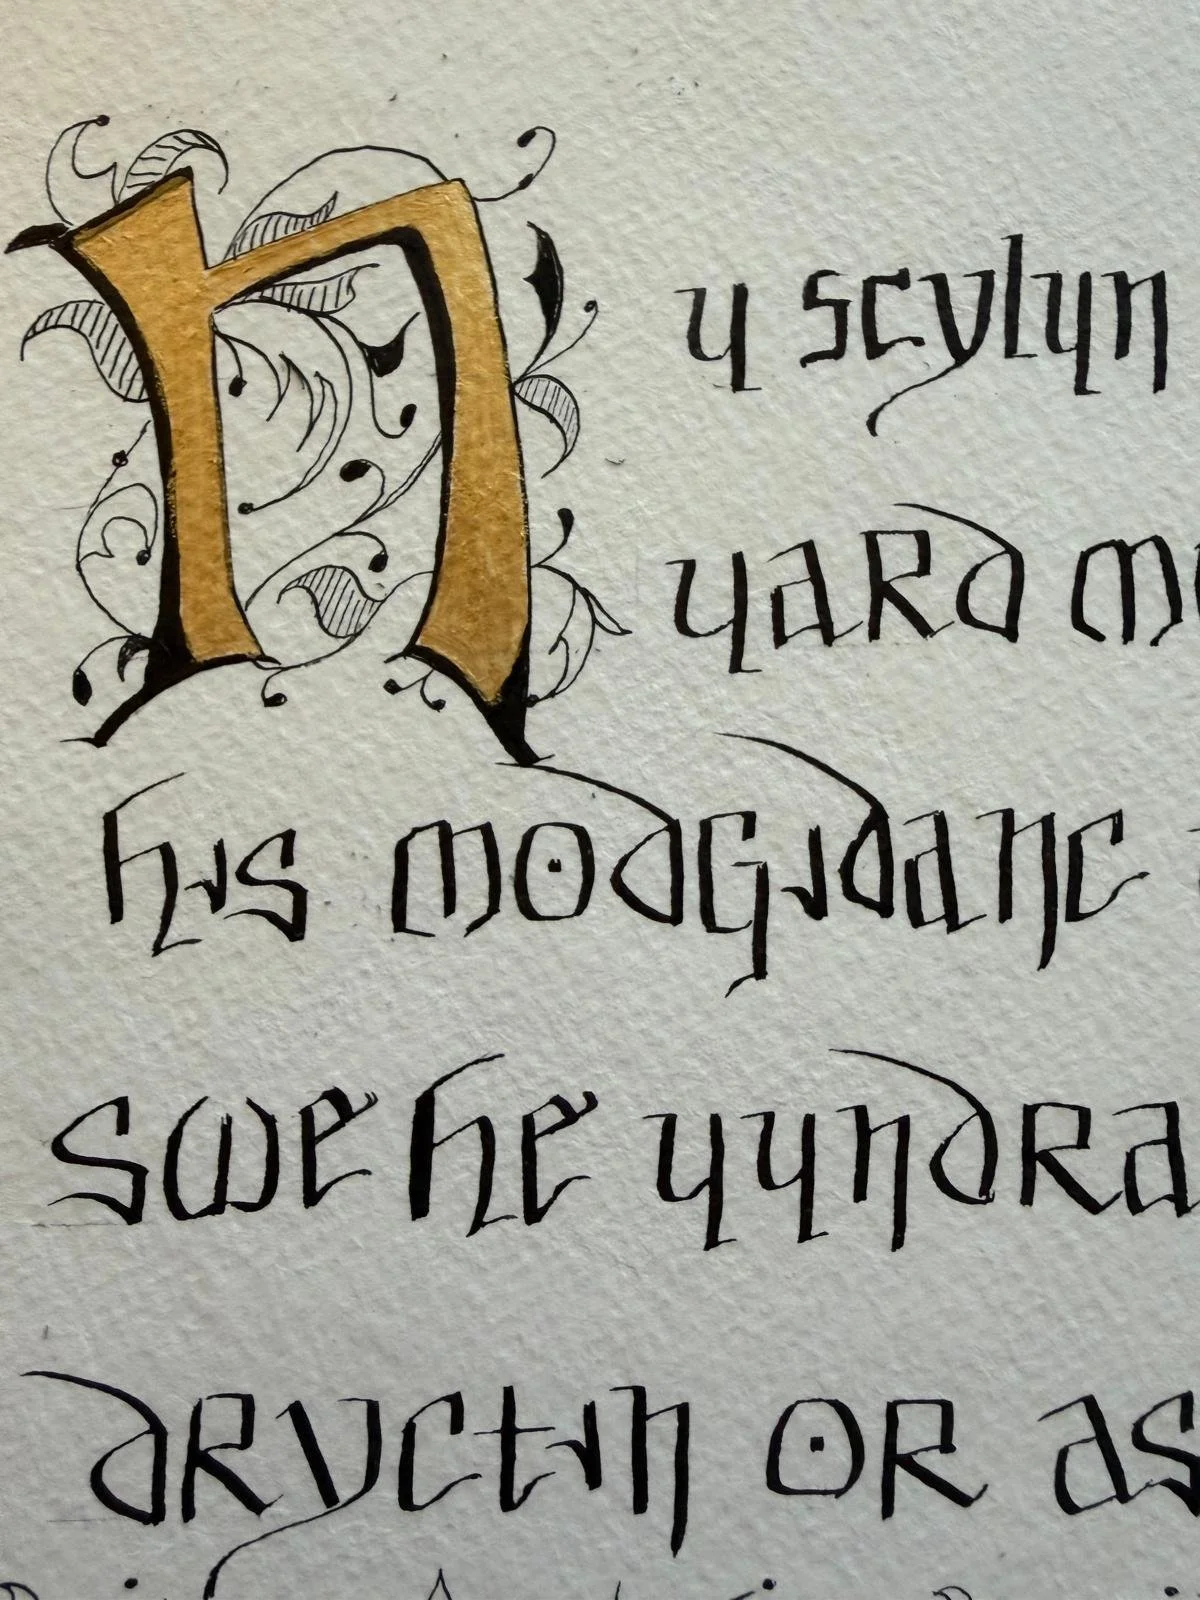 Nu scylun
uard m
his modgidanc
swe he uundra
dryctin or as